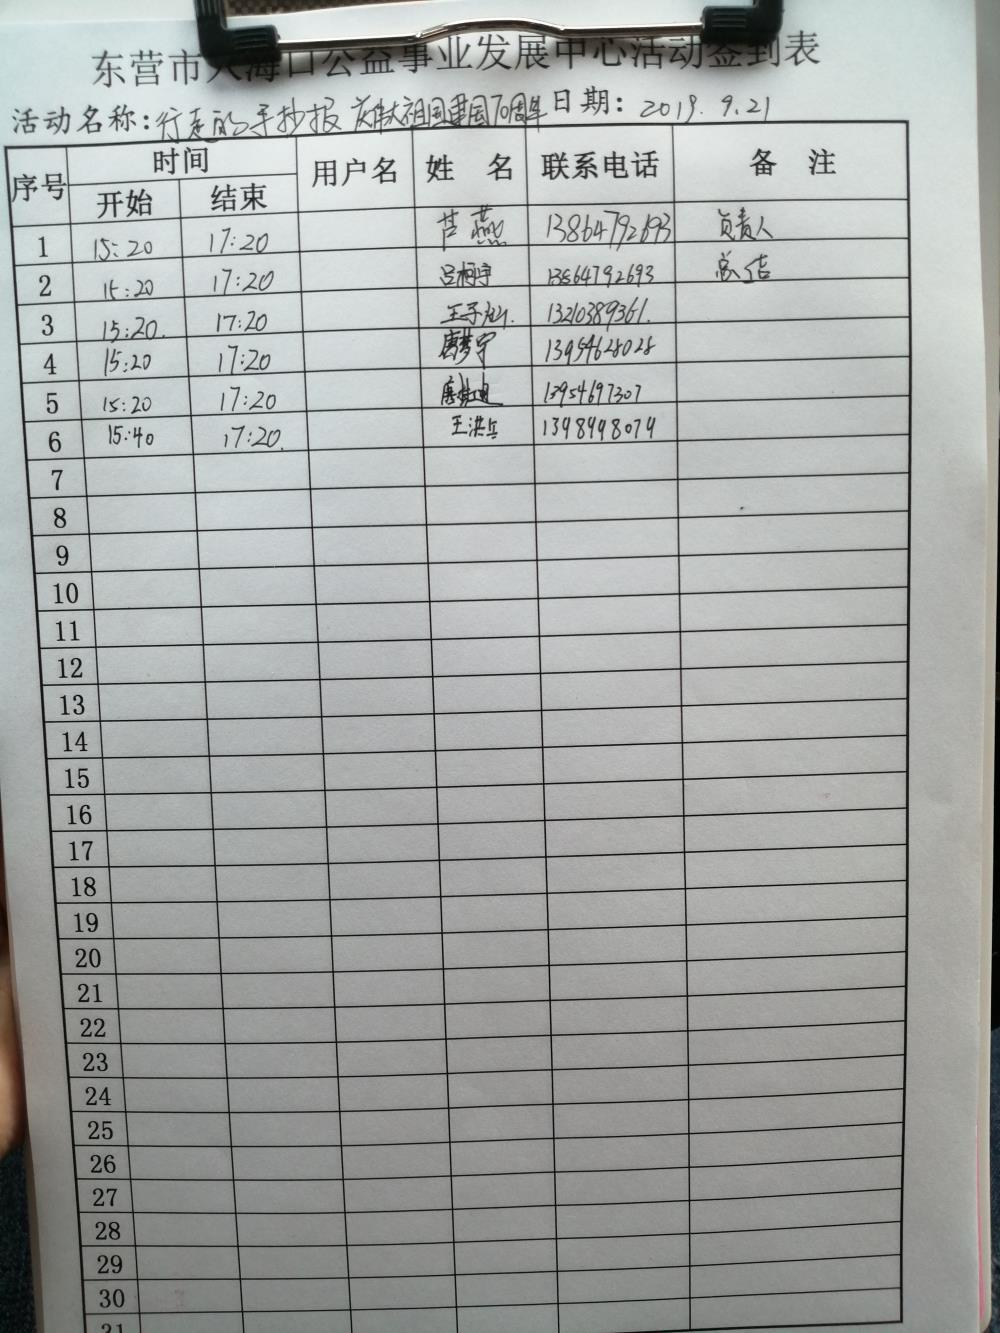 东营市入海口公益事业发展中心活动签到表
活动名称：行走的手抄报 庆伟大祖国建国70周年 日期：2019.9.21
序号 时间 用户名 姓 名 联系电话 备 注
开始 结束
1 15:20 17:20 芦燕 13864792693 负责人
2 15:20 17:20 吕柯宇 13864792693 总结
3 15:20. 17:20 王子 13210389361.
4 15:20 17:20 唐梦宁 13954628028
5 15:20 17:20 13954697307
6 15:40 17:20. 王洪兵 1398998079
7
8
9
10
11
12
13
14
15
16
17
18
19
20
21
22
23
24
25
26
27
28
29
30
31